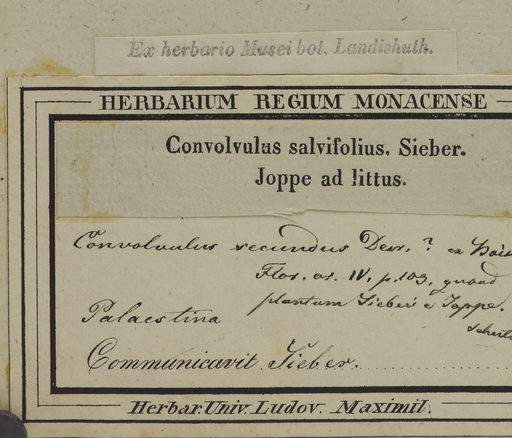 Ex herbario Musei bot. Landishuth.
HERBARIUM REGIUM MONACENSE
Convolvulus salvifolius. Sieber.
Joppe ad littus.
Convolvulus secundus Desr. ? ex Boiss
Flor. or. IV, p. 103, quoad
plantam Sieberi e Joppe.
Palaestina
Communicavit Sieber.
Herbar. Univ. Ludov. Maximil.